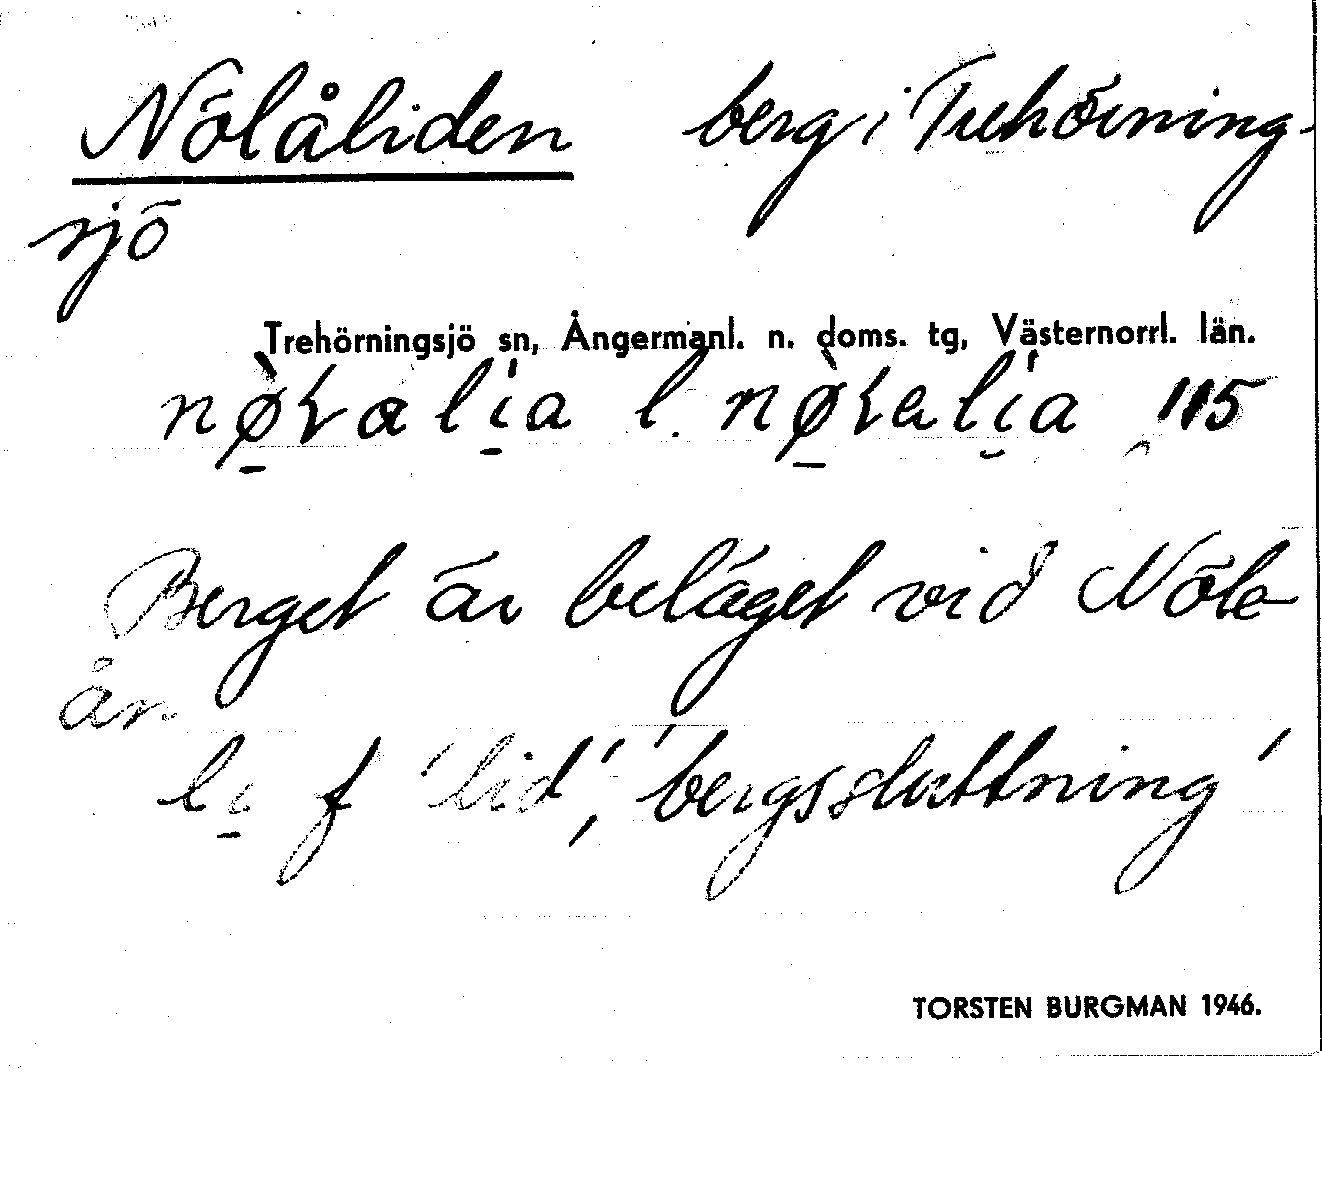 Nölåliden berg i Trehörning-
sjö
Trehörningsjö sn, Ångermanl. n. doms. tg, Västernorrl. län.
Berget är beläget vid Nöle-
ån.
li̱ f 'lid', 'bergssluttning'
TORSTEN BURGMAN 1946.